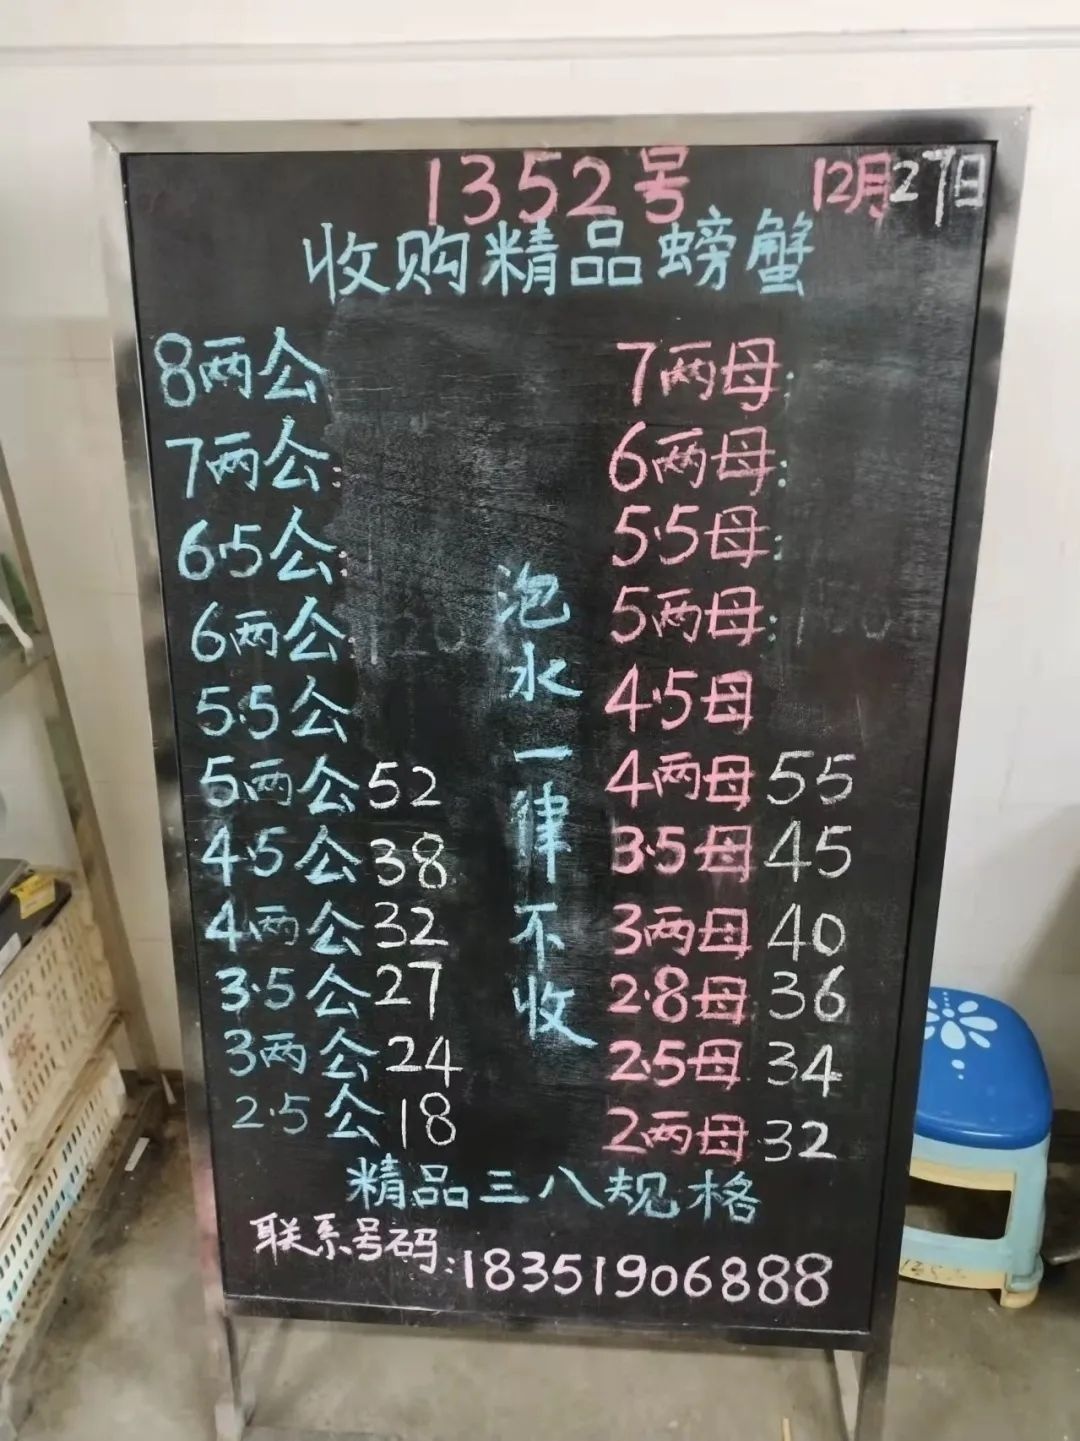 1352号 12月27日
收购精品螃蟹
8两公: 7两母:
7两公: 6两母:
6.5公: 5.5母:
6两公: 5两母:
5.5公 4.5母
5两公52 4两母55
4.5公38 3.5母45
4两公32 3两母40
3.5公27 2.8母36
3两公24 2.5母34
2.5公18 2两母32
泡水一律不收
精品三八规格
联系号码:18351906888